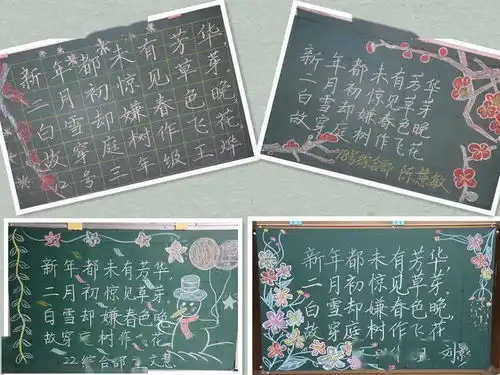 新年都未有芳华，
二月初惊见草芽。
白雪却嫌春色晚，
故穿庭树作飞花
12号三年级王烨
新年都未有芳华
二月初惊见草芽
白雪却嫌春色晚
故穿庭树作飞花
185综合部 陈慧敏
新年都未有芳华
二月初惊见草芽，
白雪却嫌春色晚，
故穿庭树作飞花
22综合部
新年都未有芳华，
二月初惊见草芽，
白雪却嫌春色晚，
故穿庭树作飞花